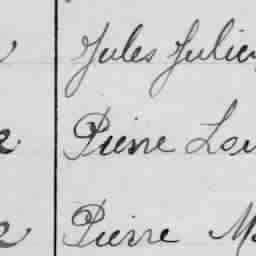 Jules Julien
Pierre Lou
Pierre Ma